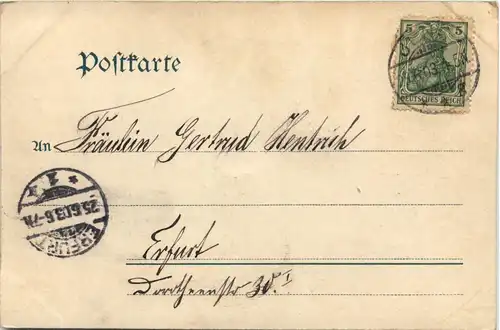 Postkarte
5 5
DEUTSCHES REICH
An Fräulein Gertrud Hentrich
* 1 *
25.6.03.6-7N.
ERFURT
Erfurt
Dorotheenstr 30. I